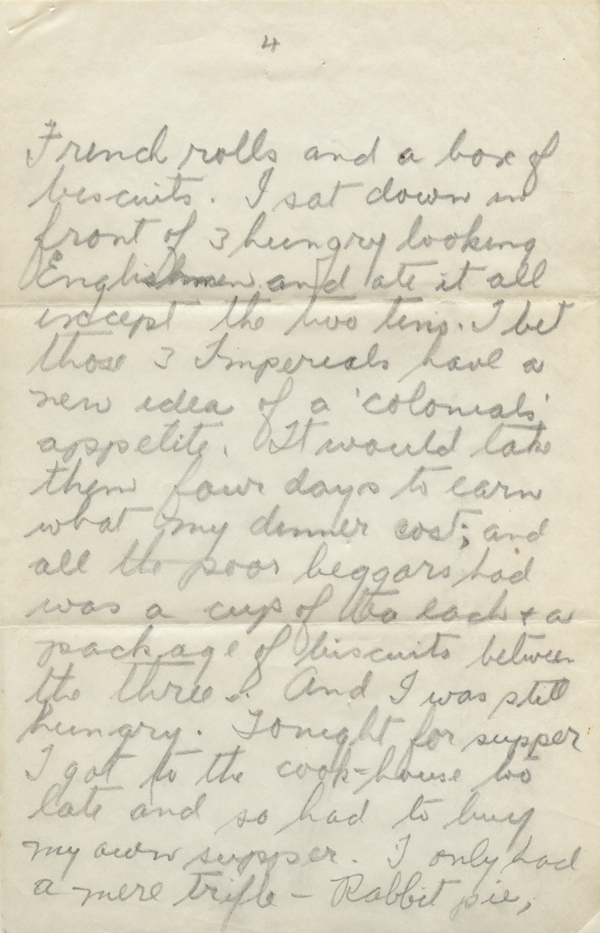 4
French rolls and a box of
biscuits. I sat down in
front of 3 hungry looking
Englishmen and ate it all
except the two tins. I bet
those 3 Imperials have a
new idea of a 'colonials'
appetite. It would take
them four days to earn
what my dinner cost; and
all the poor beggars had
was a cup of tea each + a
package of biscuits between
the three. And I was still
hungry. Tonight for supper
I got to the cook-house too
late and so had to buy
my own supper. I only had
a mere trifle - Rabbit pie,